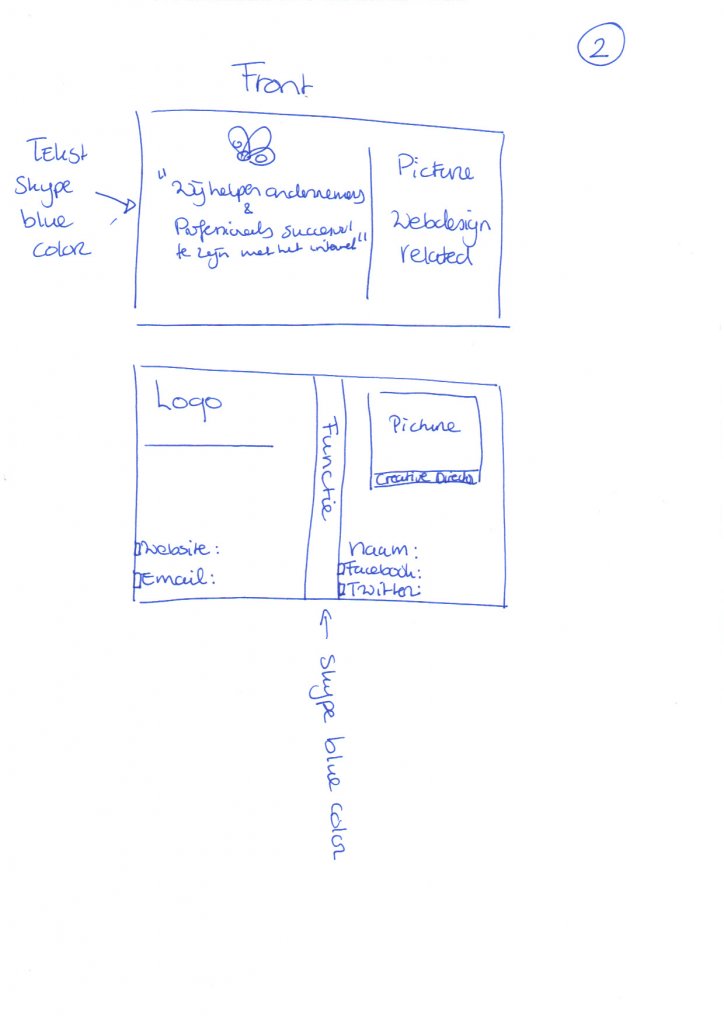 2
Front
Tekst
Skype
blue
color
"Wij helpen ondernemers
&
Professionals succesvol
te zijn met het internet"
Picture
Webdesign
related
Logo
Functie
Picture
Creative Director
Website:
Email:
Naam:
Facebook:
Twitter:
Skype blue color